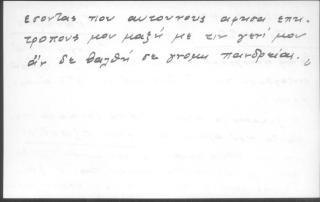 έσοντας που αυτουνους αφησα επι-
τροπους μου μαζή με τιν γενί μου
άν δε θαλθή σε γνομι πανδρείαι.